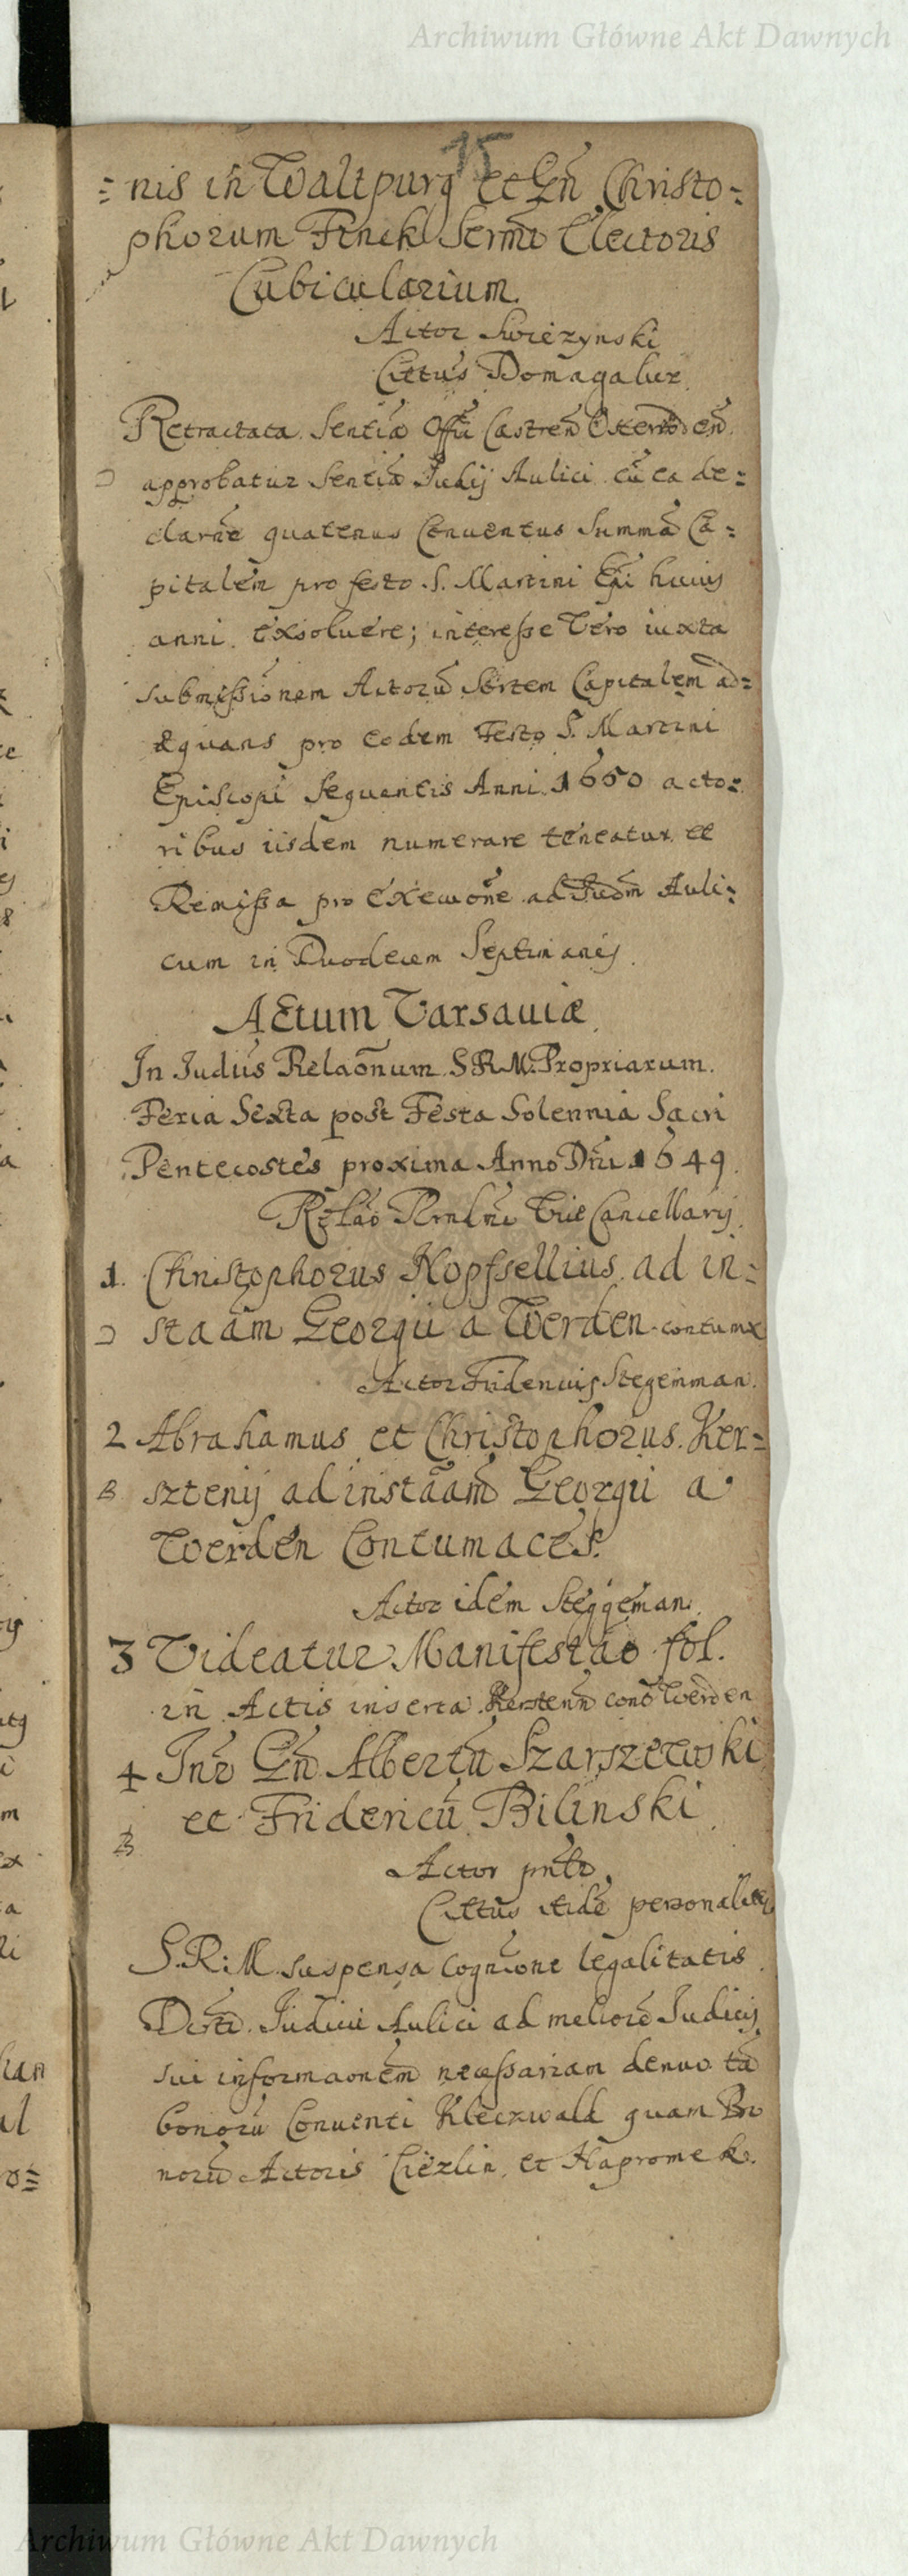 Archiwum Główne Akt Dawnych
15
= nis in Waltpurg et Gn Christo=
phorum Finck Sermi Electoris
Cubicularium.
Actor Swiezynski
Cittus Domagalur.
Retractata Sentia Offii Castren Osterroden
approbatur Sentia Iudij Aulici cu ea de=
clarne quatenus Conventus Summa Ca=
pitalem pro festo S. Martini Epi huius
anni exsoluere; interesse Vero iuxta
submissionem Actoru Sortem Capitalem ad=
æquans pro eodem Festo S. Martini
Episcopi sequentis Anni 1650 acto=
ribus iisdem numerare teneatur et
Remissa pro Execuone ad Iudm Auli=
cum in Duodecem Septimanis.
Actum Varsaviæ
In Iudiis Relaonum S.R.M. Propriarum.
Feria Sexta post Festa Solennia Sacri
Pentecostes proxima Anno Dni 1649.
Relao Rmi Vice Cancellarij.
1. Christophorus Hopfsellius ad in=
staam Georgii a Werden contumx
Actor Fridericus Stegemman.
2 Abrahamus et Christophorus Ker=
B sztenij ad instaam Georgii a
Werden Contumaces.
Actor idem Steggeman.
3 Videatur Manifestao fol.
in Actis inserta Kersten cont Werden
4 Inr Gn Albertu Szarszewski
et Fridericu Bilinski
B
Actor pnlr
Cittus itide personaliter
S.R.M. suspensa cognione legalitatis
Decrti Iudicii Aulici ad meliore Iudicij
sui informaonem necessariam denuo ta
bonoru Conventi Kleczwald quam Bo
noru Actoris Ciezlin et Napromek.
Archiwum Główne Akt Dawnych